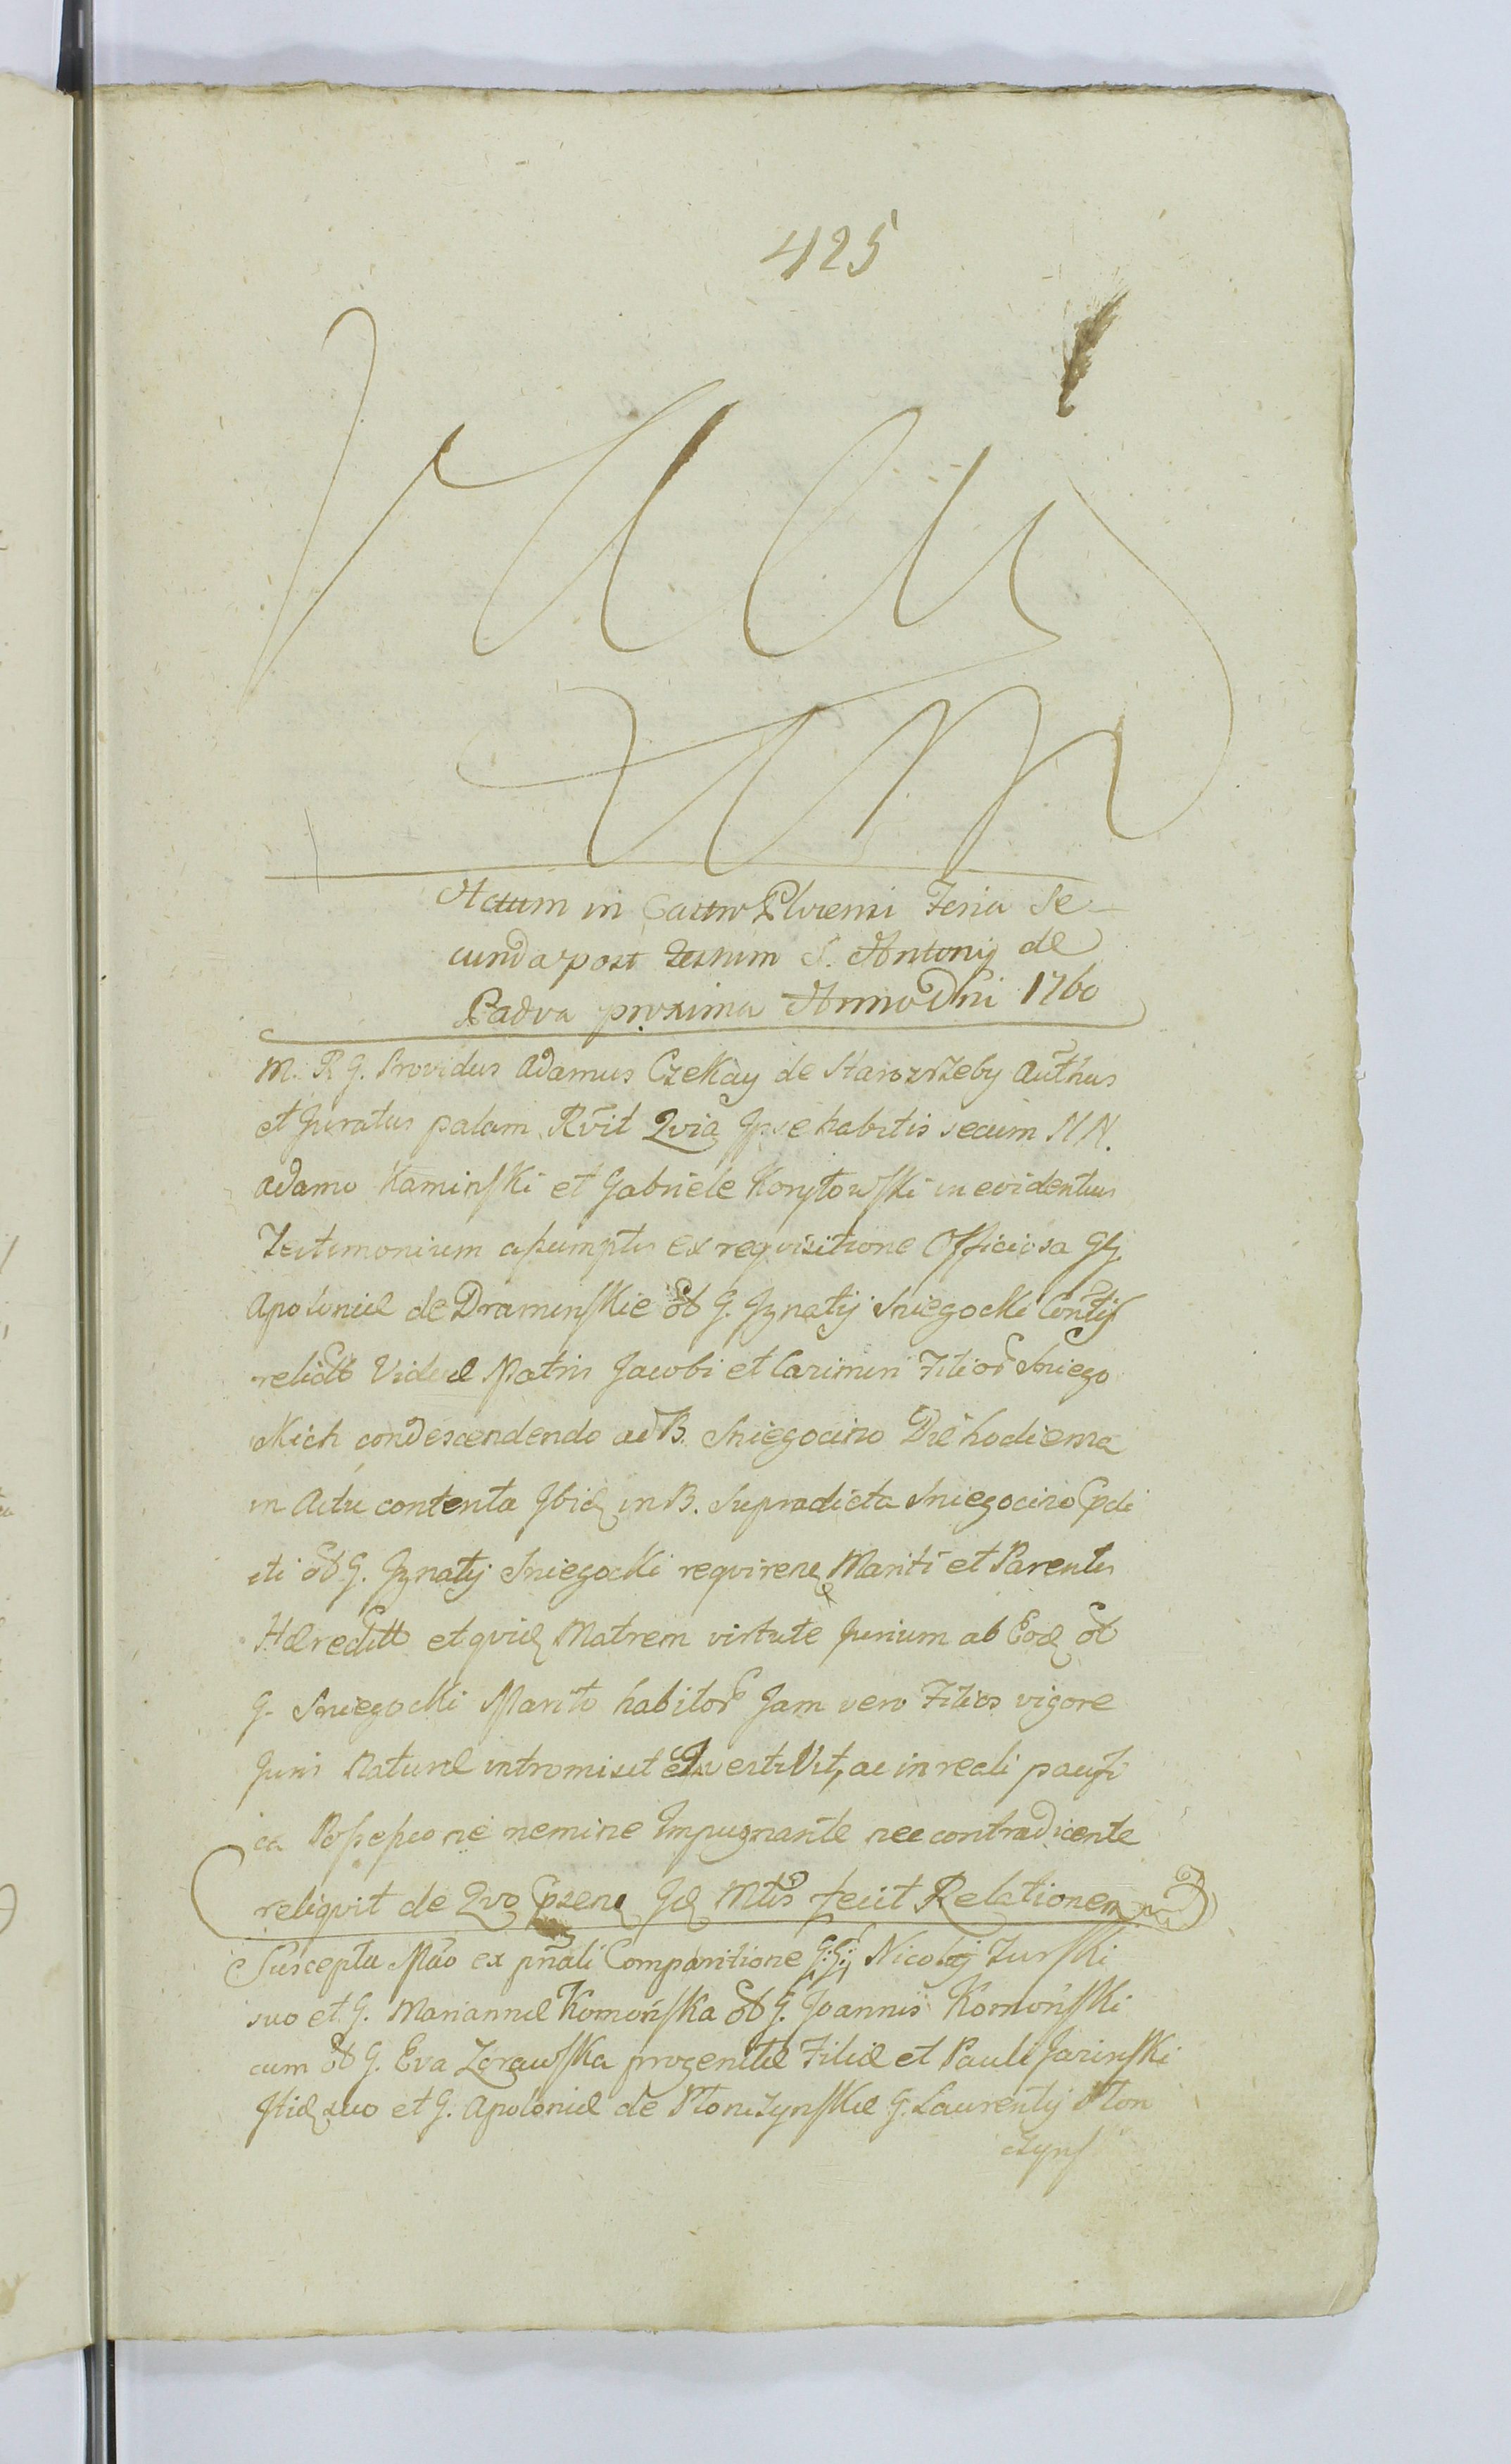 425
Actum in Castro Plocensi Feria Se-
cunda post Festum S. Antonij de
Padva proxima Anno Dni 1760
M. R. G. Providus Adamus Czekay de Starozrzeby Authus
et Juratus palam Rvit Qvia Ipse habitis secum NN.
Adamo Kaminski et Gabriele Korytowski in evidentius
Testimonium assumptis ex reqvisitione Officiosa GG.
Apoloniæ de Draminskie ol G. Ignatij Sniegocki Contis
relictæ Viduæ Matris Jacobi et Casimiri Filior Sniego
ckich condescendendo ad B. Sniegocino Die hodierna
in Actu contenta Ibid in B. Supradicta Sniegocino
cti ol G. Ignatij Sniegocki reqviren Mariti et Parentis
Hæreditt et qvid Matrem virtute Jurium ab Eod ol
G. Sniegocki Marito habitor Jam vero Filios vigore
Juris Naturæ intromisit et Investivit, ac in reali pacifi
ca Possessione nemine Impugnante nec contradicente
reliqvit de Qvo Id Mtis fecit Relationem
Suscepta Mão ex pñali Comparitione G.G. Nicolaj Turski
suo et G. Mariannæ Komońska ol G. Joannis Komoński
cum ol G. Eva Zorawska progenitæ Filiæ et Pauli Jarinski
Itid suo et G. Apoloniæ de Płonczynskie G. Laurentij Płon
czyns